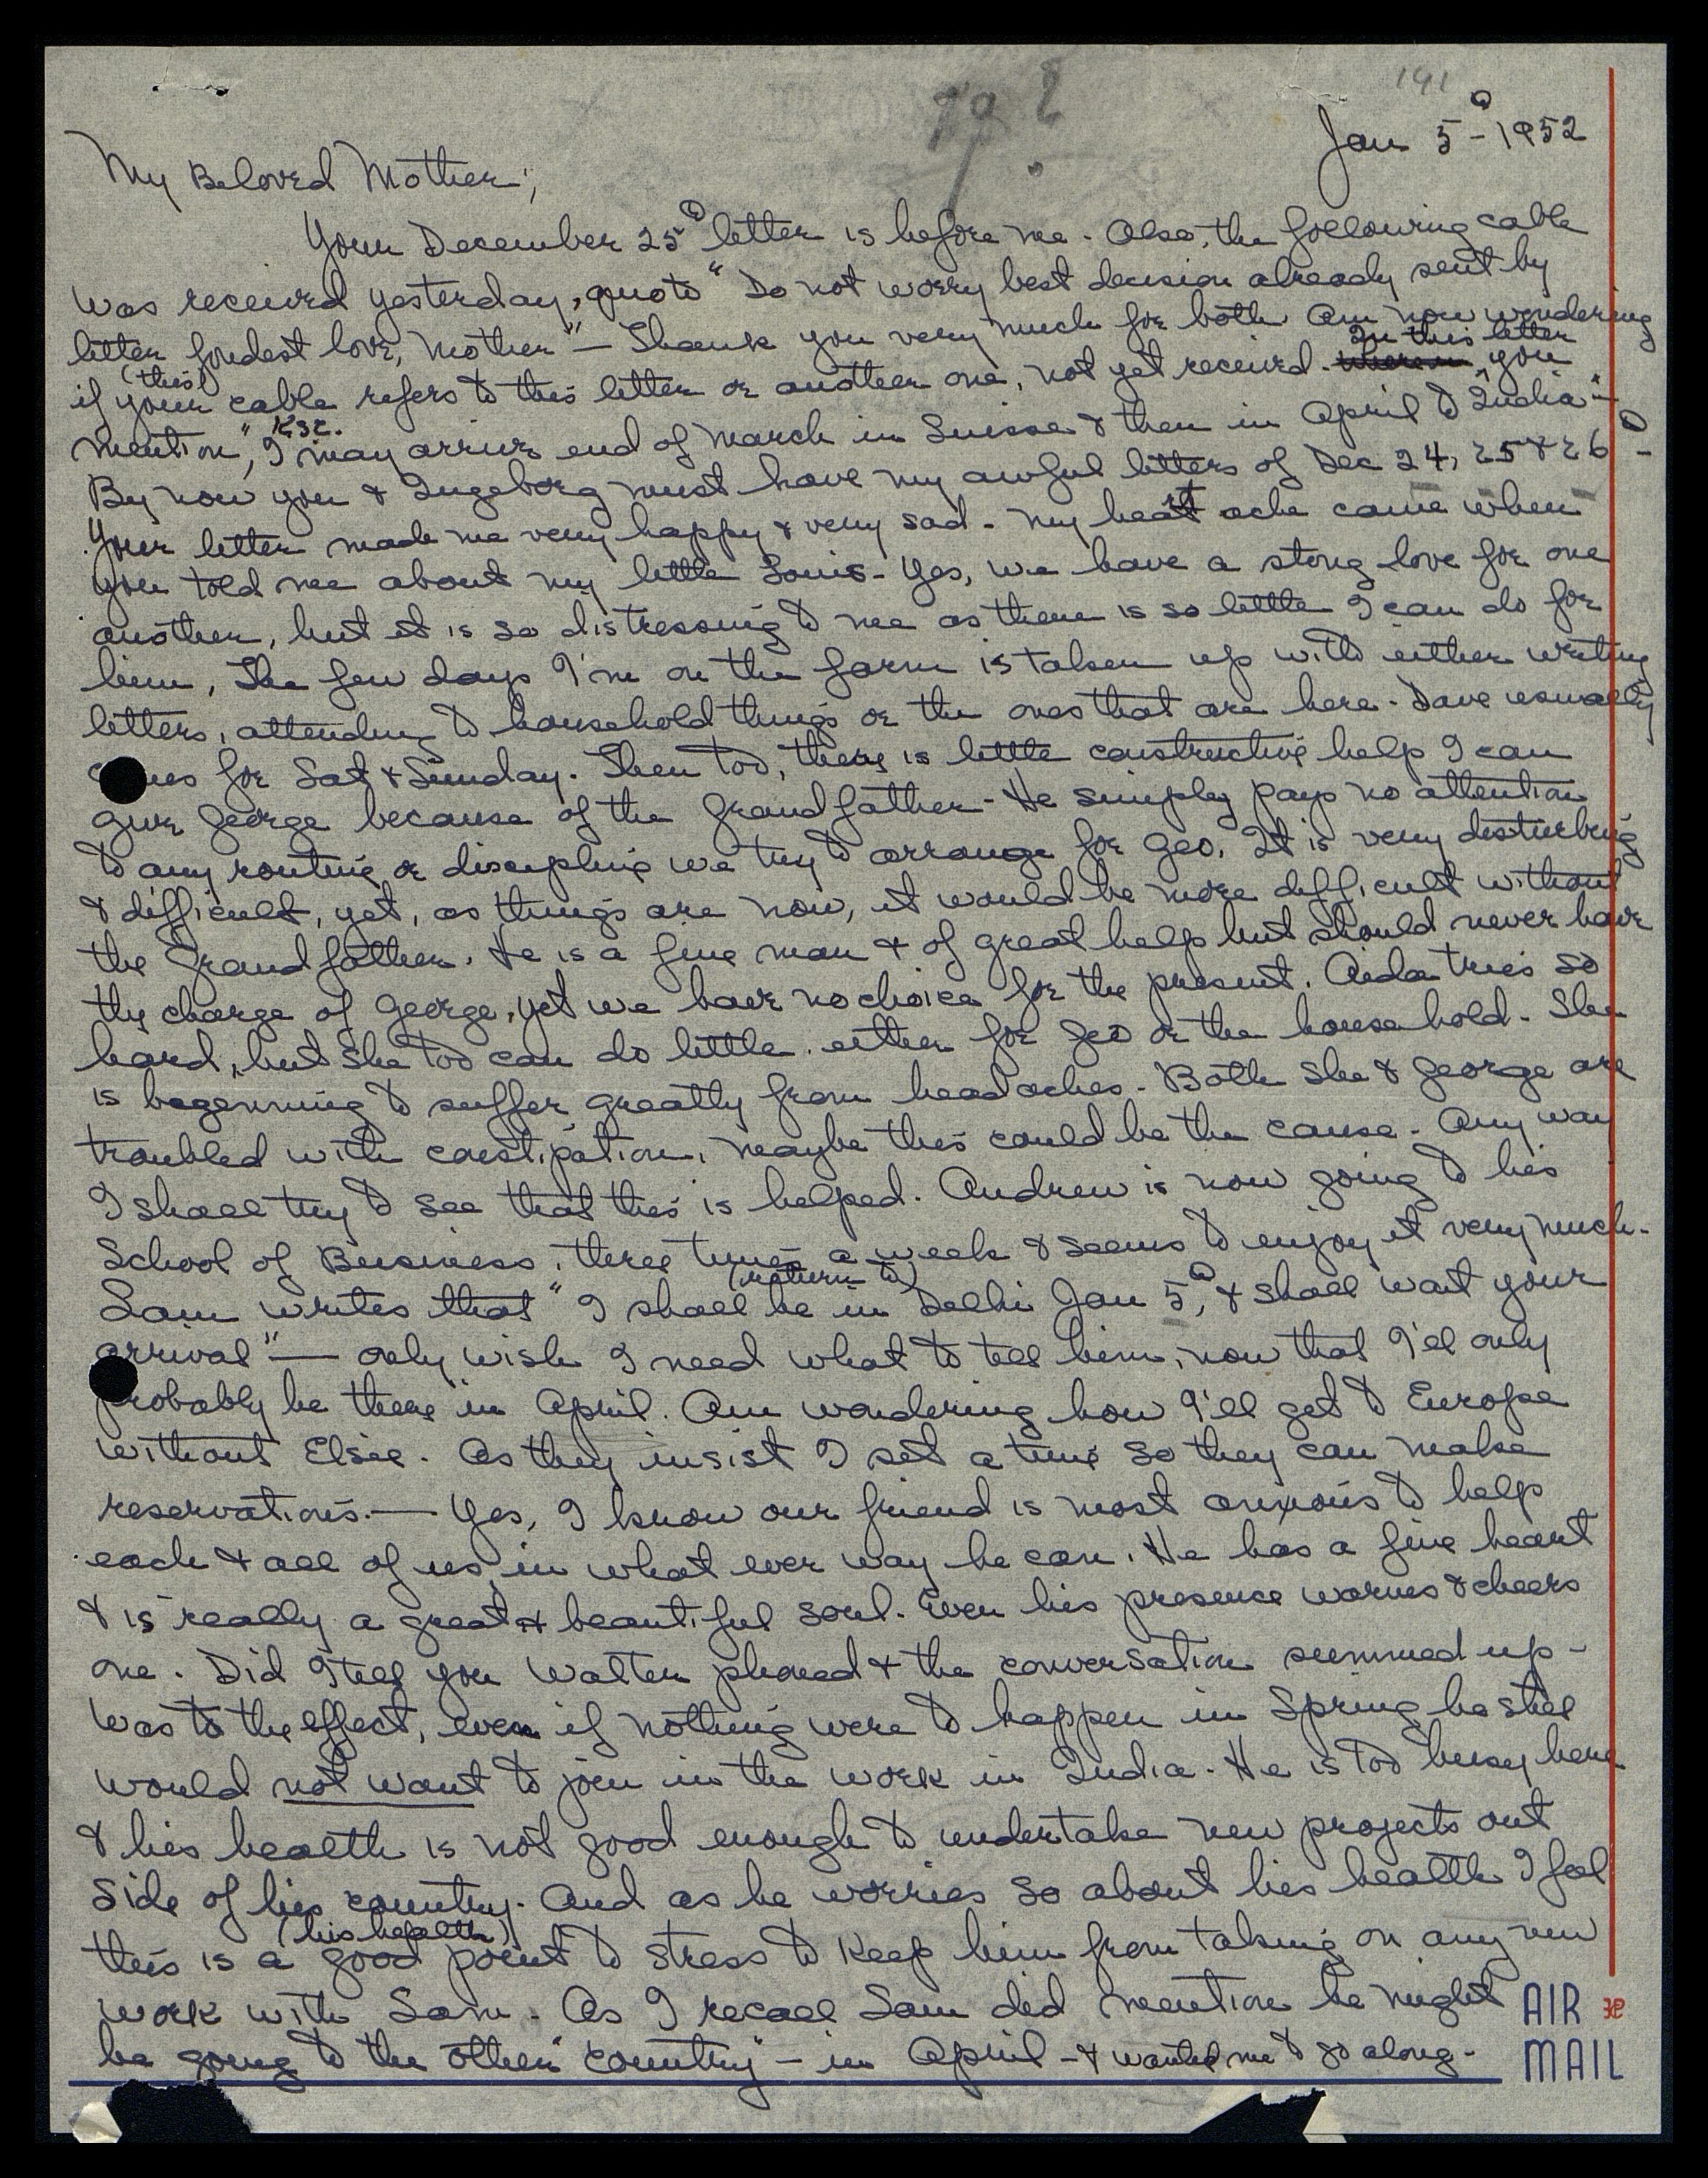 191
Jan 5 - 1952
My Beloved Mother;
Your December 25 letter is before me. Also, the following cable
was received yesterday, quote "Do not worry best decision already sent by
letter fondest love, Mother" — Thank you very much for both. Am now wondering
if your (this) cable refers to this letter or another one, not yet received. In this letter you
mention, "KSE. I may arrive end of March in Suisse & then in April to India" —
By now you & Ingeborg must have my awful letters of Dec 24, 25 & 26 -
Your letter made me very happy & very sad - my heart ache came when
you told me about my little Louis - Yes, we have a stong love for one
another, but it is so distressing to me as there is so little I can do for
him, The few days I'm on the farm is taken up with either writing
letters, attending to household things or the ones that are here - Dave usually
comes for Sat & Sunday. Then too, there is little constructive help I can
give George because of the Grandfather - He simply pays no attention
to any routine or discipline we try to arrange for Geo. It is very disturbing
& difficult, yet, as things are now, it would be more difficult without
the Grandfather. He is a fine man & of great help but should never have
the charge of George, yet we have no choice for the present. Aida tries so
hard, but she too can do little either for Geo or the household - She
is begenning to suffer greatly from headaches - Both she & George are
troubled with constipation, maybe this could be the cause - Any way
I shall try to see that this is helped. Andrew is now going to his
School of Business, three times a week & seems to enjoy it very much.
Sam writes that "I shall be in (return to) Delhi Jan 5, & shall wait your
arrival" — only wish I need what to tell him, now that I'll only
probably be there in April. Am wondering how I'll get to Europe
without Elsie. As they insist I set a time so they can make
reservations. — Yes, I know our friend is most anxious to help
each & all of us, in what ever way he can. He has a fine heart
& is really a great & beautiful soul. Even his presence warms & cheers
one. Did I tell you Walter phoned & the conversation summed up -
was to the effect, even if nothing were to happen in Spring he still
would not want to join in the work in India - He is too busy here
& his health is not good enough to undertake new projects out
side of his country. And as he worries so about his health I feel
this is a (his health) good point to stress to keep him from taking on any new
work with Sam. As I recall Sam did mention he might
be going to the "other country" - in April - & wanted me to go along -
AIR
MAIL